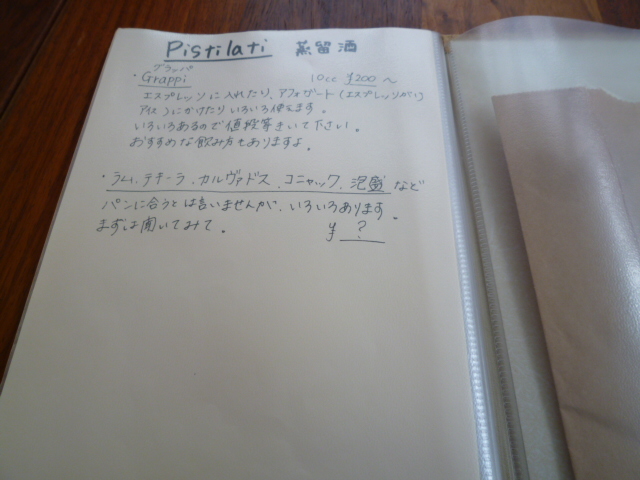 Pistilati 蒸留酒
グラッパ
・Grappi 10cc ¥200～
エスプレッソに入れたり、アフォガード(エスプレッソがい)
アイス)にかけたりいろいろ使えます。
いろいろあるので値段等きいて下さい。
おすすめな飲み方もありますよ。
・ラム、テキーラ、カルヴァドス、コニャック、泡盛 など
パンに合うとは言いませんが、いろいろあります。
まずは聞いてみて。 ¥ ?